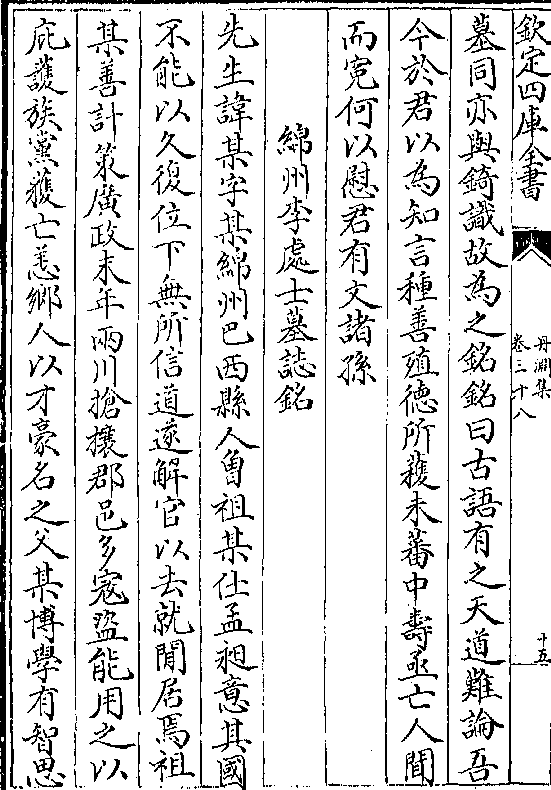 欽定四庫全書
丹淵集
卷三十八
十五
墓同亦與錡識故為之銘銘曰古語有之天道難論吾
今於君以為知言種善殖德所獲未蕃中壽亟亡人聞
而寃何以慰君有文諸孫
綿州李處士墓誌銘
先生諱某字某綿州巴西縣人曾祖某仕孟昶意其國
不能以久復位下無所信道遂解官以去就閒居焉祖
某善計策廣政末年兩川搶攘郡邑多寇盜能用之以
庇護族黨獲亡恙鄉人以才豪名之父某博學有智思